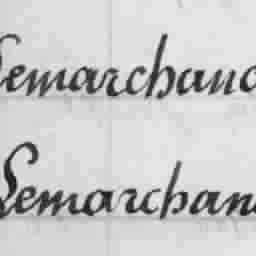 Lemarchand
Lemarchan